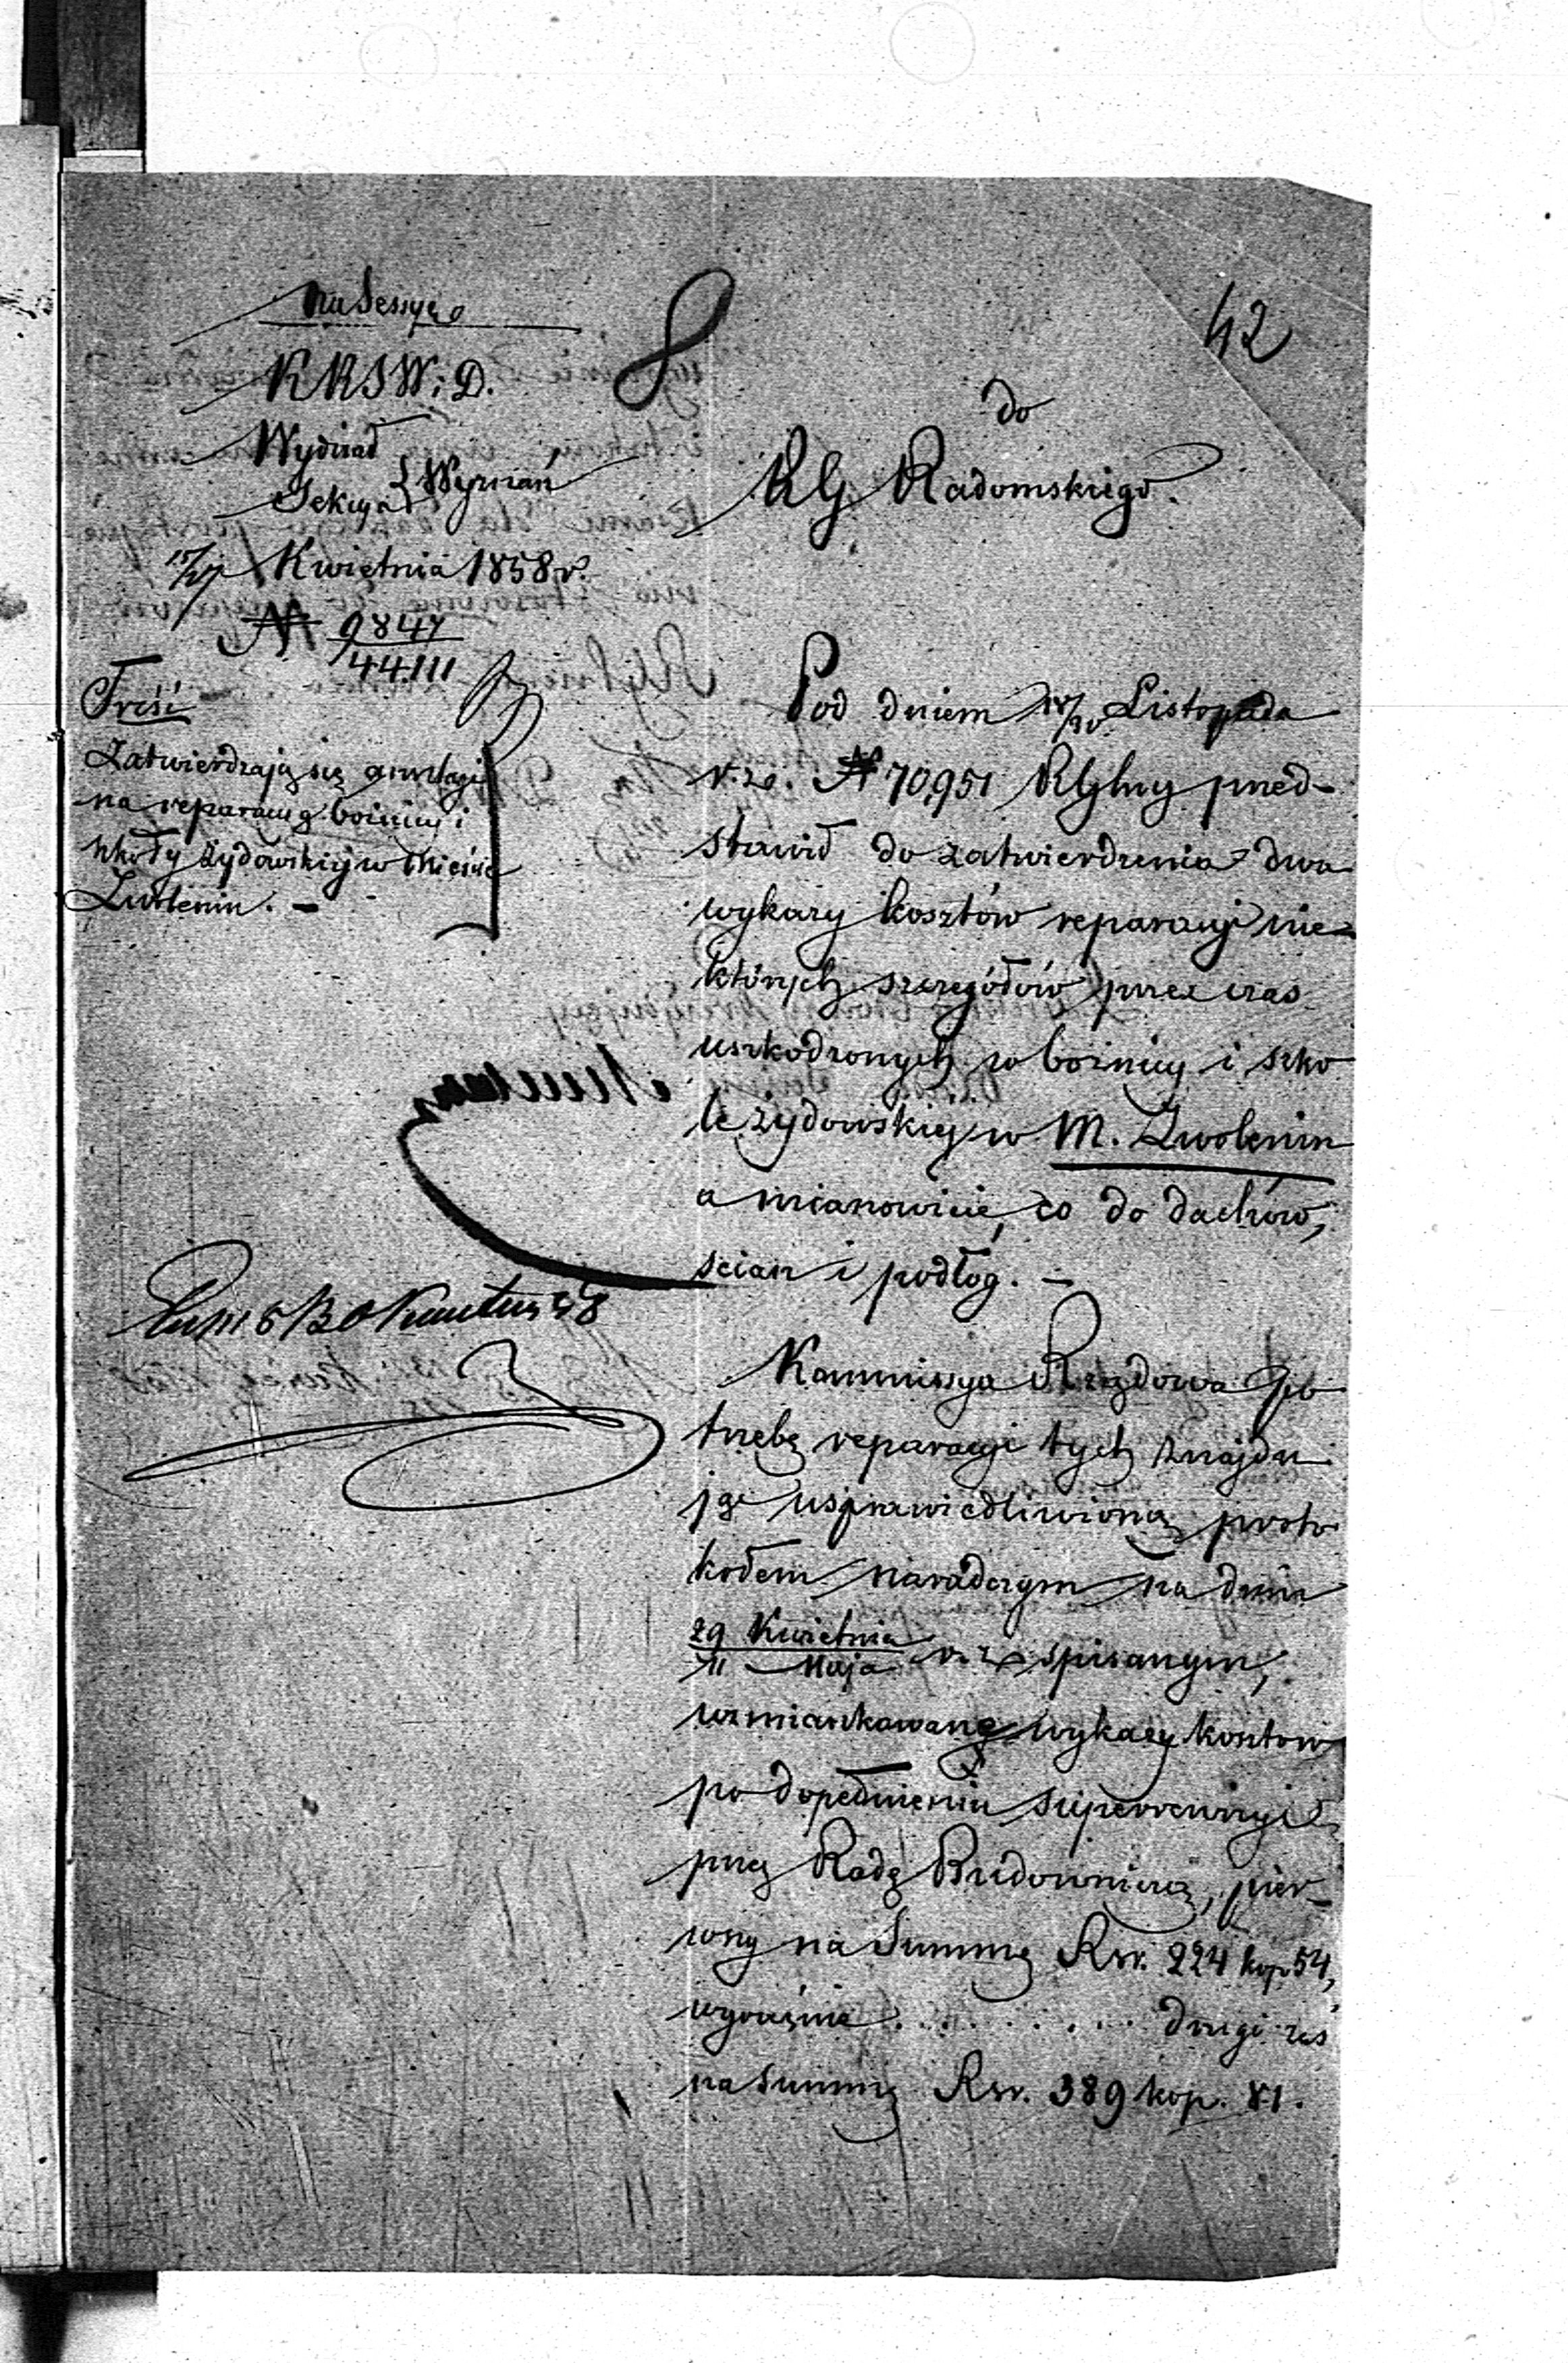 42
8
na Sessyę
KRSW i D.
Wydział
Sekcya } Wyznań
15/27 Kwietnia 1858 r.
N 9847/44111
Treść
Zatwierdzają się anszlagi
na reparacyę bożnicy i
szkoły żydowskiéj w mieście
Zwoleniu. —
do
RG. Radomskiego.
Pod dniem 18/30 Listopada
r. z. N 70,951 RGlny przed-
stawił do zatwierdzenia dwa
wykazy kosztów reparacyi nie-
których szczegółów przez czas
uszkodzonych w bożnicy i szko
le żydowskiéj w M. Zwoleniu
a mianowicie, co do dachów,
ścian i podłóg. —
Kommissya Rządowa po
trzebę reparacyi tych znajdu
jąc usprawiedliwioną proto
kółem naradczym na dniu
29 Kwietnia/11 Maja r. z. spisanym,
wzmiankowane wykazy kosztów
po dopełnieniu superrewizyi
przez Radę Budowniczą, pier-
wszy na Summę Rsr. 224 kop 54,
wyraźnie . . . . . . . drugi zaś
na summę Rsr. 389 kop. 81.